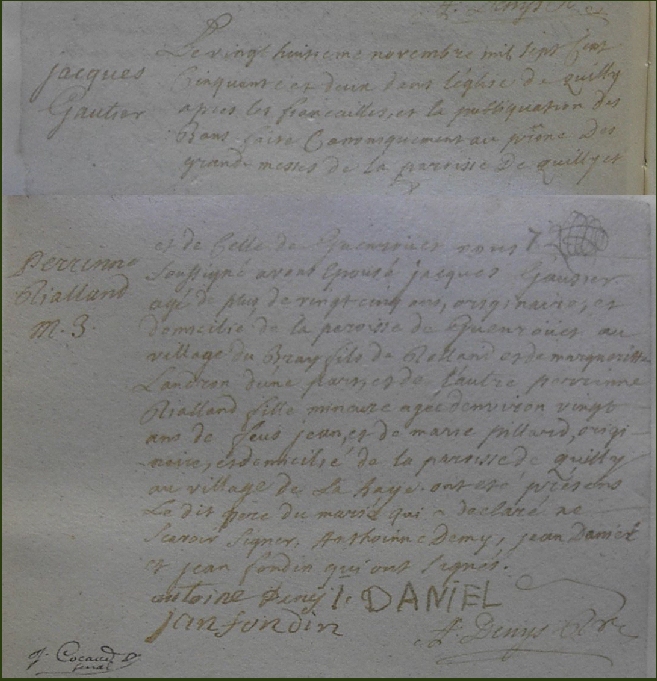 A. Denys Rec
Jacques
Gautier
Le vingt huitieme novembre mil sept Cent
Cinquente et deux dans léglise de Quilly
apres les fiancailles, et la publiquation des
bans faite Canoniquement au prône des
grandes messes de la paroisse De quilly et
Perrinne
Rialland
M. 3.
et de Celle de Guenrouet nous
Soussigné avons Epousé jacques Gautier
agé de plus de vingt cinq ans, originaire, et
domicilié de la paroisse de Guenroüet au
village du Bray fils de Rolland et de margueritte
Landron dune part, et de l'autre perrinne
Rialland fille mineure agée denviron vingt
ans de feus jean, et de marie pillard, origi
-naire, et domicilié de la paroisse de quilly
au village de La haye. ont eté présens
Le dit pere du marié qui a declaré ne
Scavoir Signer, Anthoinne Deny, jean Daniel
et jean fondin qui ont signés.
antoine Denij J. DANIEL
jan fondin
A. Denys
J. Cocaud